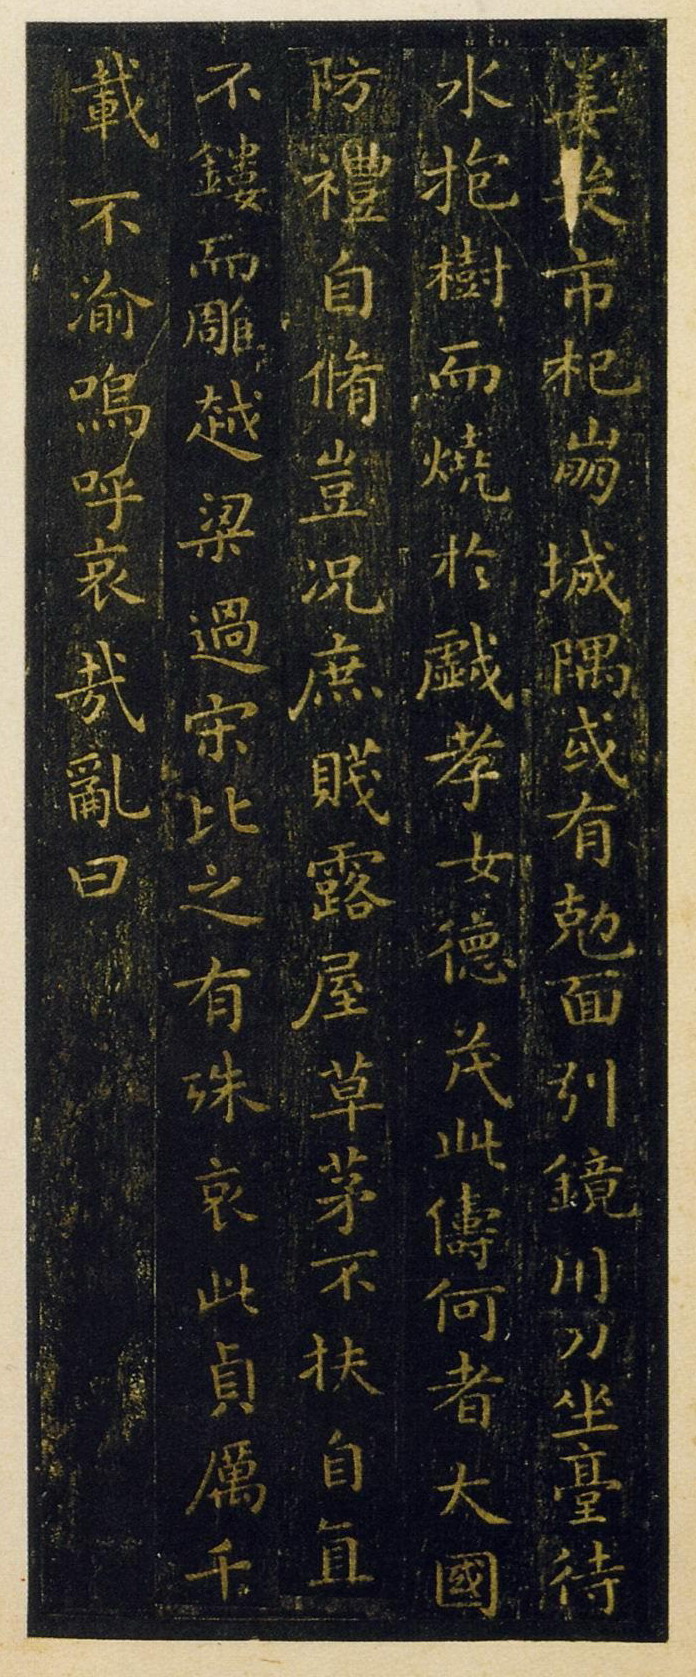 姜市杞崩城隅或有尅面引鏡用刀坐臺待
水抱樹而燒於戯孝女德茂此儔何者大國
防禮自脩豈况庶賤露屋草茅不扶自直
不鏤而雕越梁過宋比之有殊哀此貞厲千
載不渝嗚呼哀哉亂曰